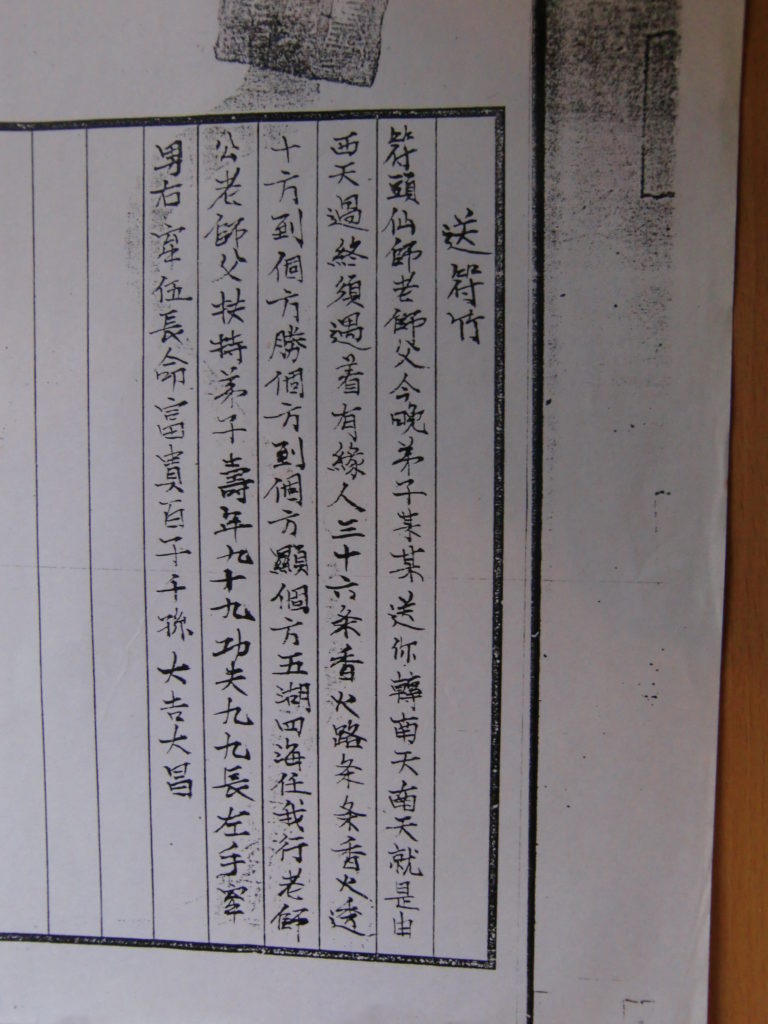 送符竹
符頭仙師老師父今晚弟子某某送你轉南天南天就是由
西天過終須遇着有緣人三十六条香火路条条香火透
十方到個方勝個方到個方顯個方五湖四海任我行老師
公老師父扶持弟子壽年九十九功夫九九長左手
男右伍長命富貴百子千孫大吉大昌